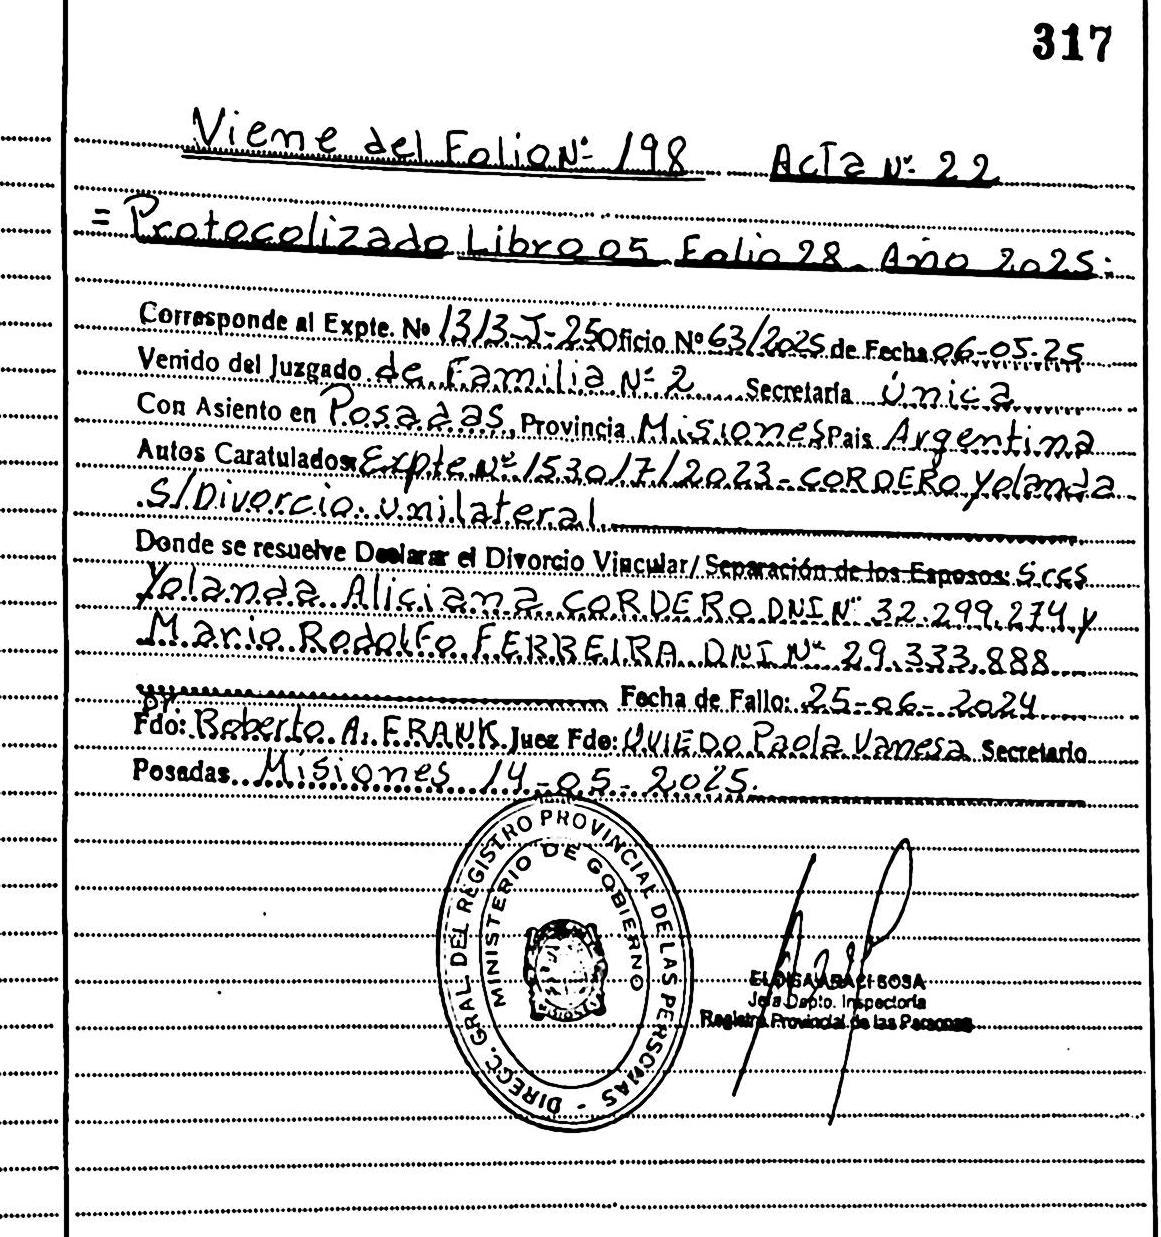 317
Viene del Folio Nº 198 Acta Nº 22
= Protocolizado Libro 05 Folio 28 Año 2025:
Corresponde al Expte. Nº 1313-J-25 Oficio Nº 63/2025 de Fecha 06-05-25
Venido del Juzgado de Familia Nº 2 Secretaría Única
Con Asiento en Posadas, Provincia Misiones País Argentina
Autos Caratulados: Expte Nº 153017/2023 - CORDERO Yolanda
S/Divorcio unilateral
Donde se resuelve Declarar el Divorcio Vincular/ Separación de los Esposos: Sres
Yolanda Aliciana CORDERO DNI Nº 32.299.274 y
Mario Rodolfo FERREIRA DNI Nº 29.333.888
Fecha de Fallo: 25-06-2024
Fdo: Dr. Roberto A. FRANK Juez Fdo: OVIEDO Paola Vanesa Secretario
Posadas Misiones 14-05-2025.
DIRECC. GRAL. DEL REGISTRO PROVINCIAL DE LAS PERSONAS -
MINISTERIO DE GOBIERNO
SOSA
Jefa Dpto. Inspectoría
Registro Provincial de las Personas